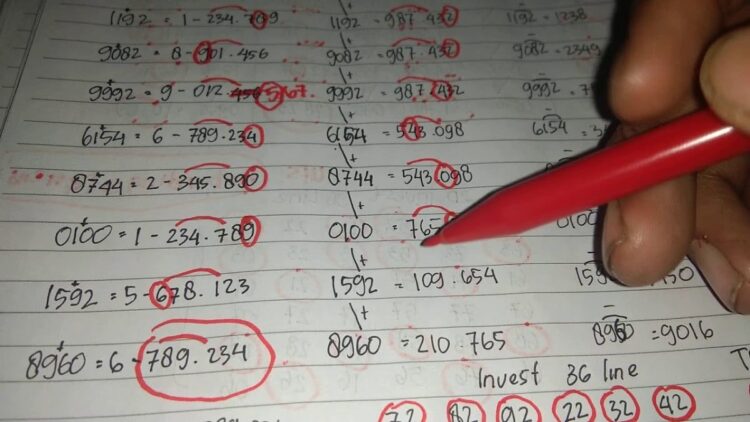 1192 = 1 - 234.789 1192 = 987.432 1192 = 1238
9082 = 8 - 901.456 9082 = 987.432 9082 = 2349
9992 = 9 - 012.456 567. 9992 = 987.432 9992 =
6154 = 6 - 789.234 6154 = 543.098 6154 =
8744 = 2 - 345.890 8744 = 543.098
0100 = 1 - 234.789 0100 = 765
1592 = 5 - 678.123 1592 = 109.654
8960 = 6 - 789.234 8960 = 210.765 8960 = 9016
Invest 36 line
72 82 92 22 32 42